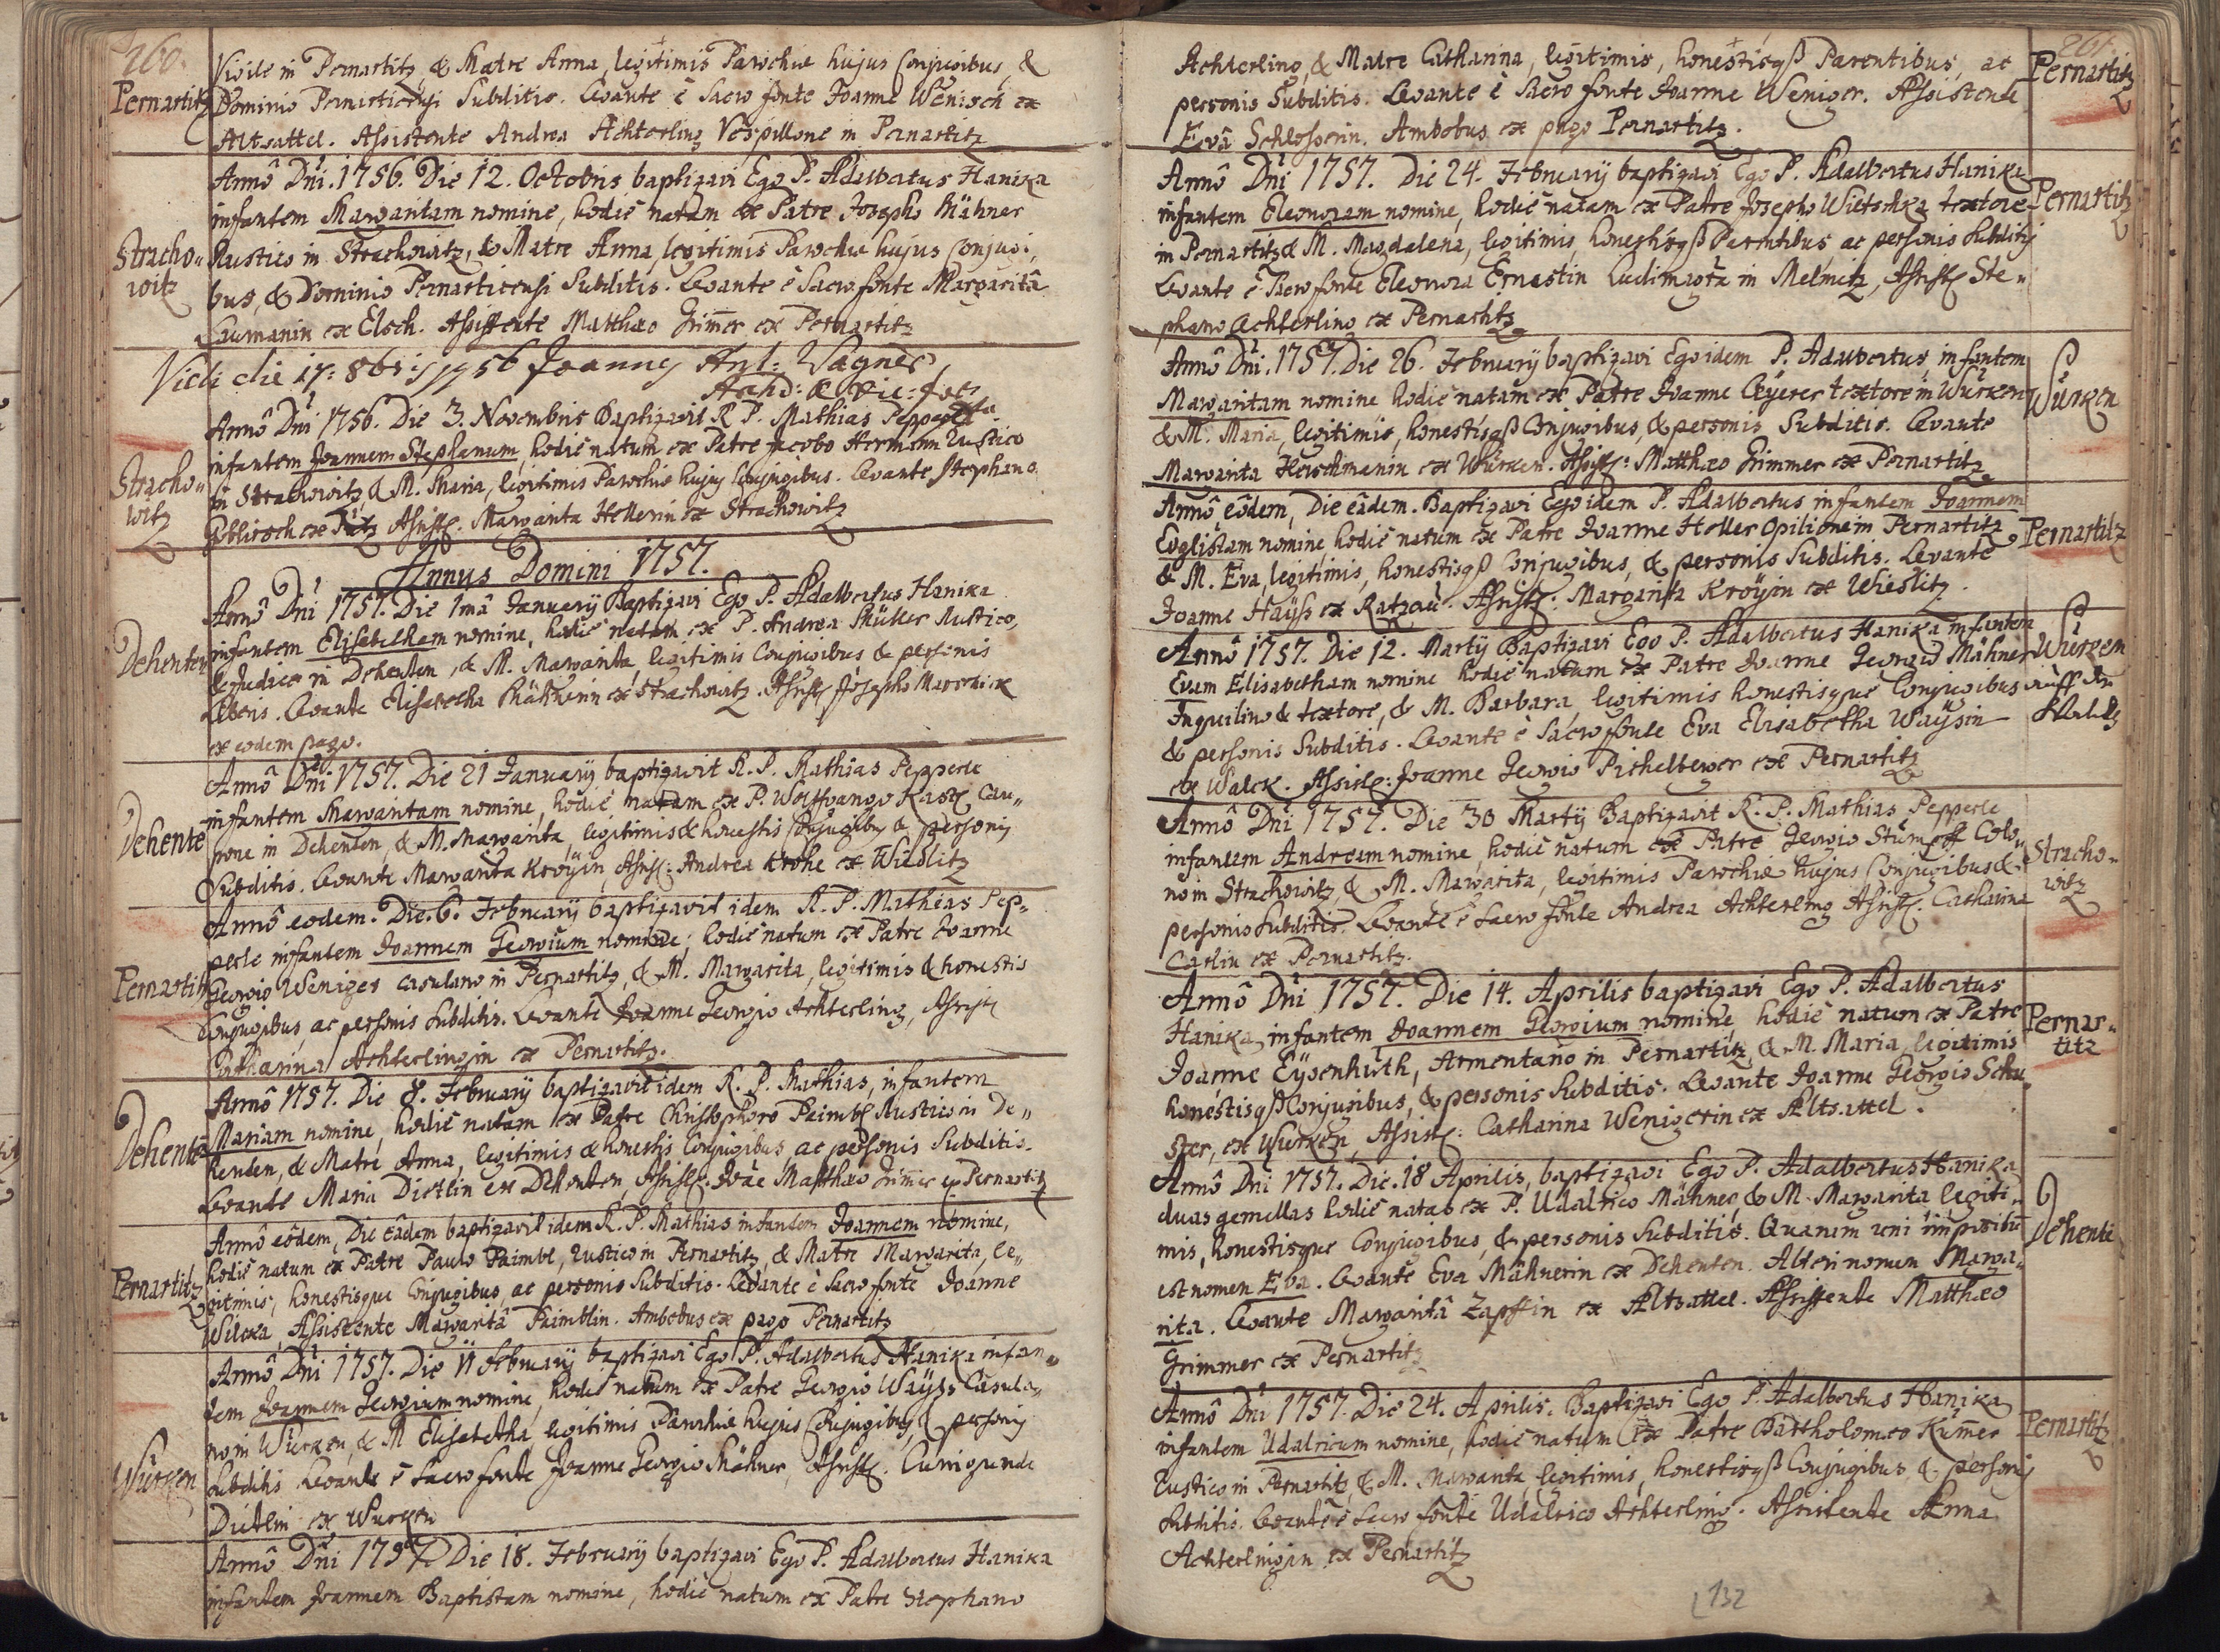 260.
Vigile in Pernartitz, & Matre Anna, legitimis Parochiæ hujus Conjugibus, &
Pernartitz
Dominio Pernarticensi Subditis. Levante è Sacro fonte Joanne Wenisch ex
Altsattel. Assistente Andrea Achterling Vespillone in Pernartitz
Annô Dni. 1756. Die 12. Octobris baptizavi Ego P. Adalbertus Hanika
infantem Margaritam nomine, hodiè natam ex Patre Josepho Mähner
Stracho-
witz
Rustico in Strachowitz, & Matre Anna, legitimis Parochiæ hujus Conjugi-
bus, & Dominio Pernarticensi Subditis. Levante è Sacro fonte Margaritâ
ex Elsch. Assistente Matthæo Grim̃er ex Pernartitz
Vidi die 17: 8bris 1756 Joannes Ant: Wagner
Annô Dni 1756. Die 3. Novembris Baptizavit R. P. Mathias Pepperle
infantem Joannem Stephanum, hodiè natum ex Patre Jacobo Hermann Rustico
Stracho-
witz
in Strachowitz, & M. Maria, legitimis Parochiæ hujus Conjugibus. Levante Stephano
ex Assist: Margarita Hellerin ex Strachowitz
Annus Domini 1757.
Annô Dni 1757. Die 1mâ Januarij Baptizavi Ego P. Adalbertus Hanika
Dehenten
infantem Elisabetham nomine, hodiè natam ex P. Andrea Müller Rustico,
& Judice in Dehenten, & M. Margarita, legitimis Conjugibus & personis
Liberis. Levante Elisabetha Mähnerin ex Strachowitz. Assist: Josepho
ex eodem pago.
Annô Dni 1757. Die 21 Januarij baptizavit R. P. Mathias Pepperle
infantem Margaritam nomine, hodiè natam ex P. Wolffgango Cau-
Dehente
pone in Dehenten, & M. Margarita, legitimis & honestis Conjugibus & personis
Subditis. Levante Margarita Kroÿin, Assist: Andrea Krohe ex Wieslitz
Annô eodem. Die 6. Februarij baptizavit idem R. P. Mathias Pep-
perle infantem Joannem Georgium nomine, hodiè natum ex Patre Joanne
Pernartitz
Georgio Weniger casulario in Pernartitz, & M. Margarita, legitimis & honestis
Conjugibus, ac personis Subditis. Levante Joanne Georgio Achterling, Assist:
Catharina Achterlingin ex Pernartitz.
Annô 1757. Die 8. Februarij baptizavit idem R. P. Mathias, infantem
Mariam nomine, hodiè natam ex Patre Christophoro Paimbl Rustico in De-
Dehente
henten, & Matre Anna, legitimis & honestis Conjugibus ac personis Subditis.
Levante Maria Dietlin ex Dehenten, Assist: Matthæo Grimer ex Pernartitz
Annô eôdem, Die eâdem baptizavit idem R. P. Mathias infantem Joannem nomine,
hodiè natum ex Patre Paulo Paimbl, rustico in Pernartitz, & Matre Margarita, le-
Pernartitz
gitimis, honestisque Conjugibus, ac personis Subditis. Levante è Sacro fonte Joanne
Wilcka, Assistente Margaritâ Paimblin. Ambobus ex pago Pernartitz
Annô Dni 1757. Die 11 Februarij baptizavi Ego P. Adalbertus Hanika infan-
tem Joannem Georgium nomine, hodiè natum ex Patre Georgio Waÿss Casula-
Würken
no in Würken, & M. Elisabetha, legitimis Parochiæ hujus Conjugibus, & personis
Subditis. Levante è Sacro fonte Joanne Georgio Mähner, Assist: Cunigunde
Dietlin ex Wurken
Annô Dni 1757. Die 18. Februarij baptizavi Ego P. Adalbertus Hanika
infantem Joannem Baptistam nomine, hodiè natum ex Patre Stephano
261.
Achterling, & Matre Catharina, legitimis, honestisqß Parentibus, ac
Pernartitz
personis Subditis. Levante è Sacro fonte Joanne Weniger. Assistente
Evâ Schlosserin. Ambobus ex pago Pernartitz.
Annô Dni 1757. Die 24. Februarij baptizavi Ego P. Adalbertus Hanika
infantem Eleonoram nomine, hodiè natam ex Patre Josepho Wietschka textore
Pernartitz
in Pernartitz & M. Magdalena, legitimis, honestisqß Parentibus, ac personis Subditis
Levante è Sacro fonte Eleonora Ernestin Ludimagra in Melmitz, Assist: Ste-
phano Achterling ex Pernartitz
Annô Dni. 1757. Die 26. Februarij baptizavi Ego idem P. Adalbertus, infantem
Margaritam nomine hodiè natam ex Patre Joanne textore in Würken
Würken
& M. Maria, legitimis, honestisqß Conjugibus, & personis Subditis. Levante
Margarita Herschmanin ex Würken. Assist: Matthæo Grimmer ex Pernartitz
Annô eôdem, Die eâdem. Baptizavi Ego idem P. Adalbertus infantem Joannem
Evglistam nomine, hodiè natum ex Patre Joanne Heller Opilione in Pernartitz
Pernartitz
& M. Eva, legitimis, honestisqß Conjugibus, & personis Subditis. Levante
Joanne Haÿss ex Ratzau. Assist: Margarita Kroÿin ex Wieslitz.
Annô 1757. Die 12. Martij Baptizavi Ego P. Adalbertus Hanika infantem
Evam Elisabetham nomine hodiè natam ex Patre Joanne Georgio Mähner
Würken
auff der
Inquilino & textore, & M. Barbara, legitimis honestisque Conjugibus
& personis Subditis. Levante è Sacro fonte Eva Elisabetha Waÿsin
ex Walck. Assist: Joanne Georgio Pichelberger ex Pernartitz
Annô Dni 1757. Die 30 Martij Baptizavit R. P. Mathias Pepperle
infantem Andream nomine, hodiè natum ex Patre Georgio Stümpff Colo-
Stracho-
witz
no in Strachowitz, & M. Margarita, legitimis Parochiæ hujus Conjugibus &
personis Subditis. Levante è Sacro fonte Andrea Achterling Assist: Catharina
Carlin ex Pernartitz.
Annô Dni 1757. Die 14. Aprilis baptizavi Ego P. Adalbertus
Hanika infantem Joannem Georgium nomine, hodiè natum ex Patre
Pernar-
titz
Joanne Eÿsenhuth, Armentario in Pernartitz, & M. Maria, legitimis
honestisqß Conjugibus, & personis Subditis. Levante Joanne Georgio Schu-
ster, ex Wurken, Assist: Catharina Wenigerin ex Altsattel.
Annô Dni 1757. Die 18 Aprilis, baptizavi Ego P. Adalbertus Hanika
duas gemellas hodiè natas ex P. Udalrico Mähner, & M. Margarita, legiti-
Dehente
mis, honestisque Conjugibus, & personis Subditis. Quarum uni impositũ
est nomen Eva. Levante Eva Mähnerin ex Dehenten. Alteri nomen Marga-
rita. Levante Margaritâ Zapffin ex Altsattel. Assistente Matthæo
Grimmer ex Pernartitz
Annô Dni 1757. Die 24. Aprilis. Baptizavi Ego P. Adalbertus Hanika
infantem Udalricum nomine, hodiè natum ex Patre Bartholomæo Kum̃er
Pernartitz
Rustico in Pernartitz, & M. Margarita, legitimis, honestisqß Conjugibus, & personis
Subditis. Levante è Sacro fonte Udalrico Achterling. Assistente Anna
Achterlingin ex Pernartitz
132